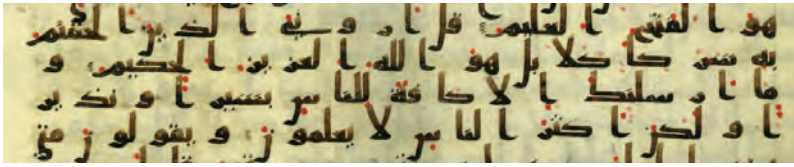 هو الفتح العليم قل ارونى الذين الحقتم
به شركا كلا بل هو الله العزيز الحكيم و
ما ارسلنك الا كافة للناس بشيرا ونذير
ا ولكن اكثر الناس لا يعلمون ويقولون متى